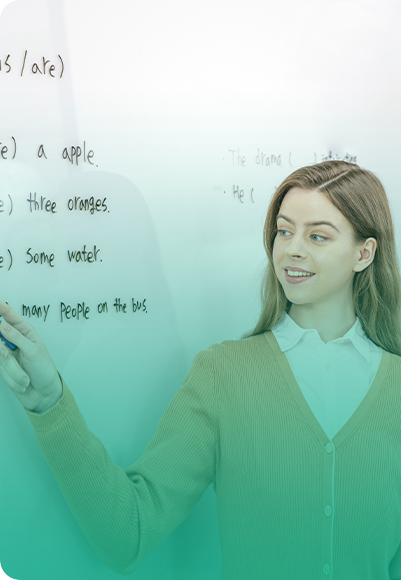 is / are)
e) a apple.
e) three oranges.
e) Some water.
many people on the bus.
· The drama (
· He (